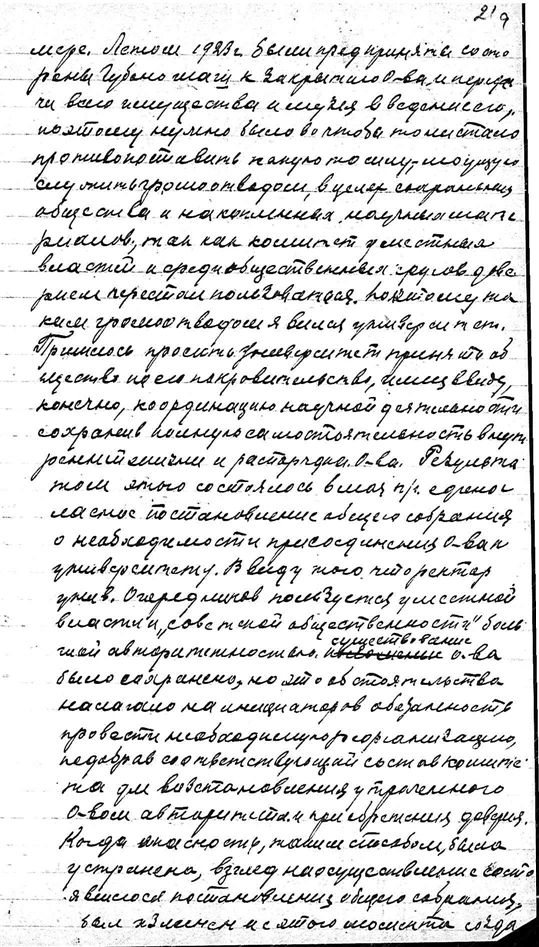 219
мере. Летом 1923 г. были предприняты со сто
роны Губоно шаги к закрытию О-ва и переда
чи всего имущества и музея в ведение его,
поэтому нужно было во чтобы то ни стало
противопоставить такую то силу, могущую
служить громоотводом, в целях сохранения
общества и накопленных научных мате
риалов, так как комитет у местных
властей и среди общественных кругов дове
рием перестал пользоваться. Поэтому та
ким громоотводом явился университет.
Пришлось просить Университет принять об
щество под его покровительство, имея ввиду,
конечно, координацию научной деятельности
сохранив полную самостоятельность внут
ренней жизни и распорядка О-ва. Результа
том этого состоялось в мая п/г. едино
гласное постановление общего собрания
о необходимости присоединения О-ва к
университету. В виду того что ректор
унив. Очередников пользуется у местной
власти и „советской общественности" боль
шой авторитетностью. существование О-ва
было сохранено, но это обстоятельства
налагало на инициаторов обязанность
провести необходимую реорганизацию,
подобрав соответствующий состав комите
та для возстановления утраченного
О-вом авторитета и приобретения доверия.
Когда опасность, таким способом, была
устранена, взгляд на осуществление состо
явшегося постановления общего собрания,
был изменен и с этого момента созда